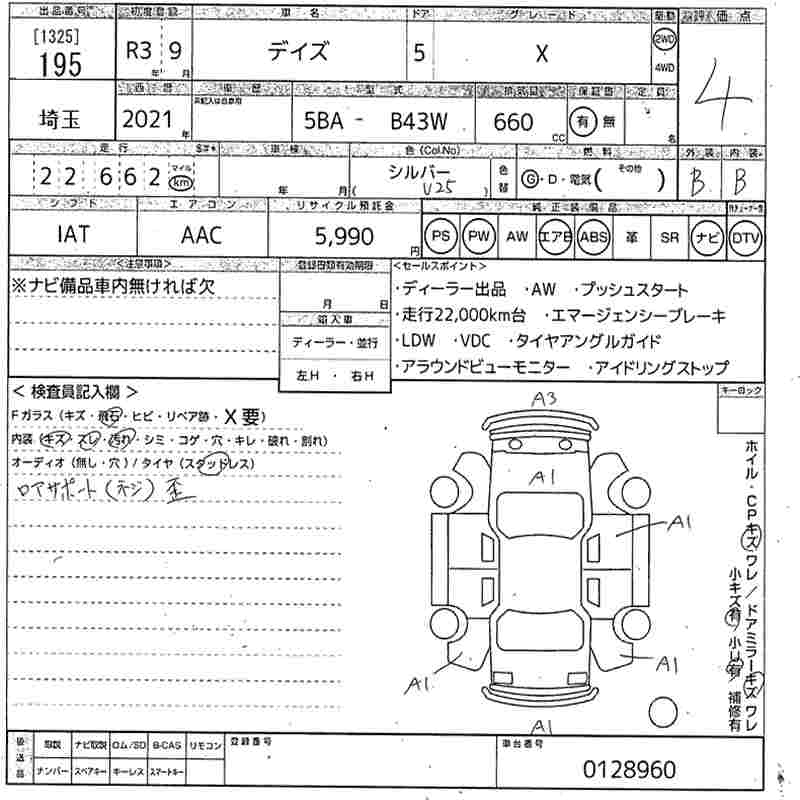 出品番号 初度登録 車名 ドア グレード 駆動 評価点
[1325]
195 R3 9 デイズ 5 X 2WD 4
年 月 4WD
西暦 車歴 型式 排気量 保証書 定員
埼玉 2021 年 5BA - B43W 660 CC 有 無 名
走行 車検 色(Col.No) 燃料 外装 内装
22662 マイル km 年 月 シルバー ( V25 ) 色替 G・D・電気( その他 ) B B
シフト エアコン リサイクル預託金 純正装備品
IAT AAC 5,990 円 PS PW AW エアB ABS 革 SR ナビ DTV
<注意事項> 登録書類有効期限 <セールスポイント>
※ナビ備品車内無ければ欠
月 日
・ディーラー出品 ・AW ・プッシュスタート
輸入車
・走行22,000km台 ・エマージェンシーブレーキ
ディーラー・並行
・LDW ・VDC ・タイヤアングルガイド
左H ・ 右H
・アラウンドビューモニター ・アイドリングストップ
< 検査員記入欄 >
キーロック
Fガラス(キズ・飛石・ヒビ・リペア跡・X要)
内装(キズ・スレ・汚れ・シミ・コゲ・穴・キレ・破れ・割れ)
オーディオ(無し・穴)/タイヤ(スタッドレス)
ロアサポート(ネジ)歪
A3
A1
A1
A1
A1
A1
ホイル・CPキズワレ/ドアミラーキズワレ
小キズ有/小U有/補修有
後送品 取説 ナビ取説 ロム/SD B-CAS リモコン 登録番号 車台番号
ナンバー スペアキー キーレス スマートキー
0128960